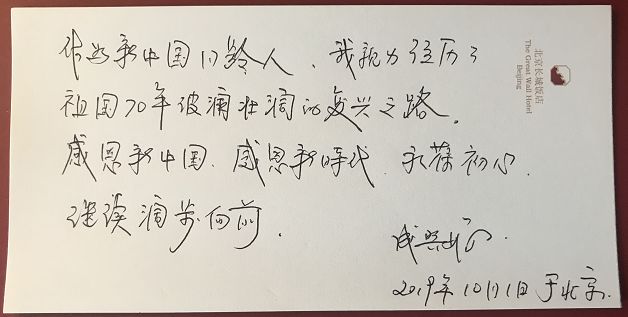 作为新中国同龄人，我亲力经历了
祖国70年波澜壮阔的复兴之路。
感恩新中国、感恩新時代，永葆初心，
继续阔步向前。
2019年10月1日于北京.
北京长城饭店
The Great Wall Hotel
Beijing